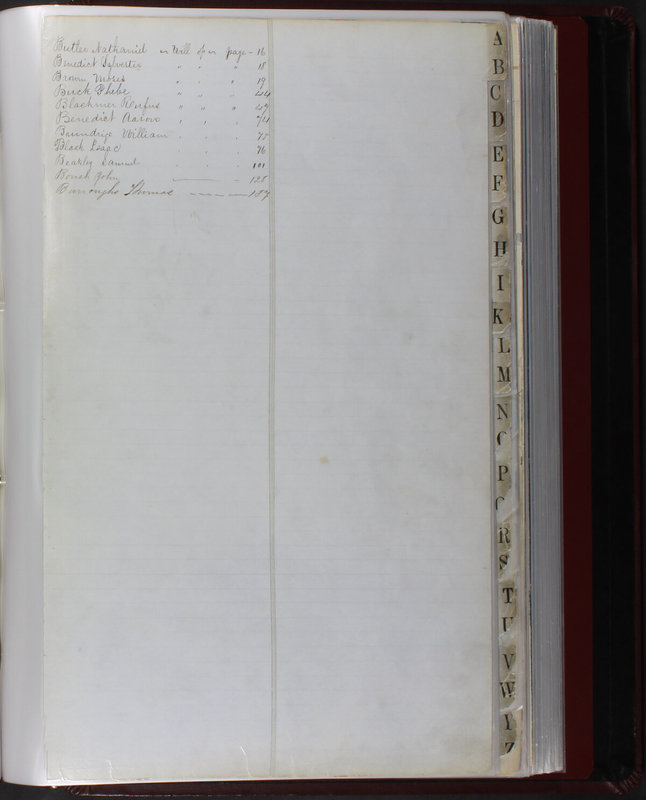 Butler Nathaniel or Will of or page - 16
Benedict Sylvester " " " 18
Brown Moses " " " 19
Buck Phebe " " " 44
Blackmer Rufus " " " 49
Benedict Aaron " " " 74
William 75
Black Isaac 76
Beakly Samuel 101
John 128
Burroughs Thomas 187
A
B
C
D
E
F
G
H
I
K
L
M
N
O
P
Q
R
S
T
U
V
W
Y
Z